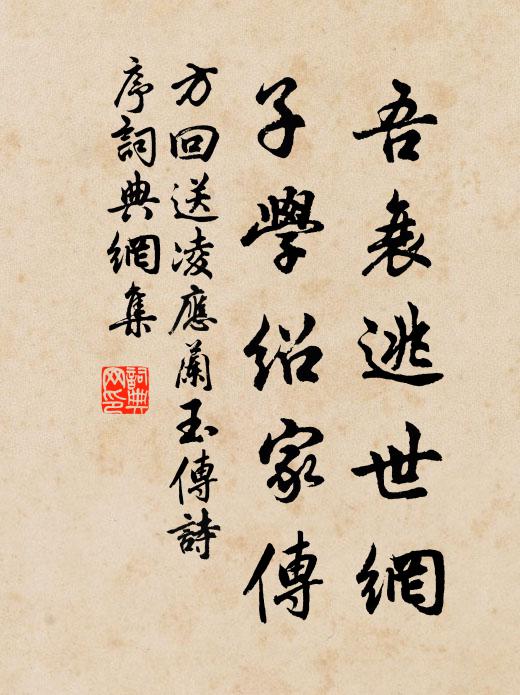 吾衰逃世網
子學紹家傳
方回送凌應蘭玉傳詩
序詞典網集
詞典
網印